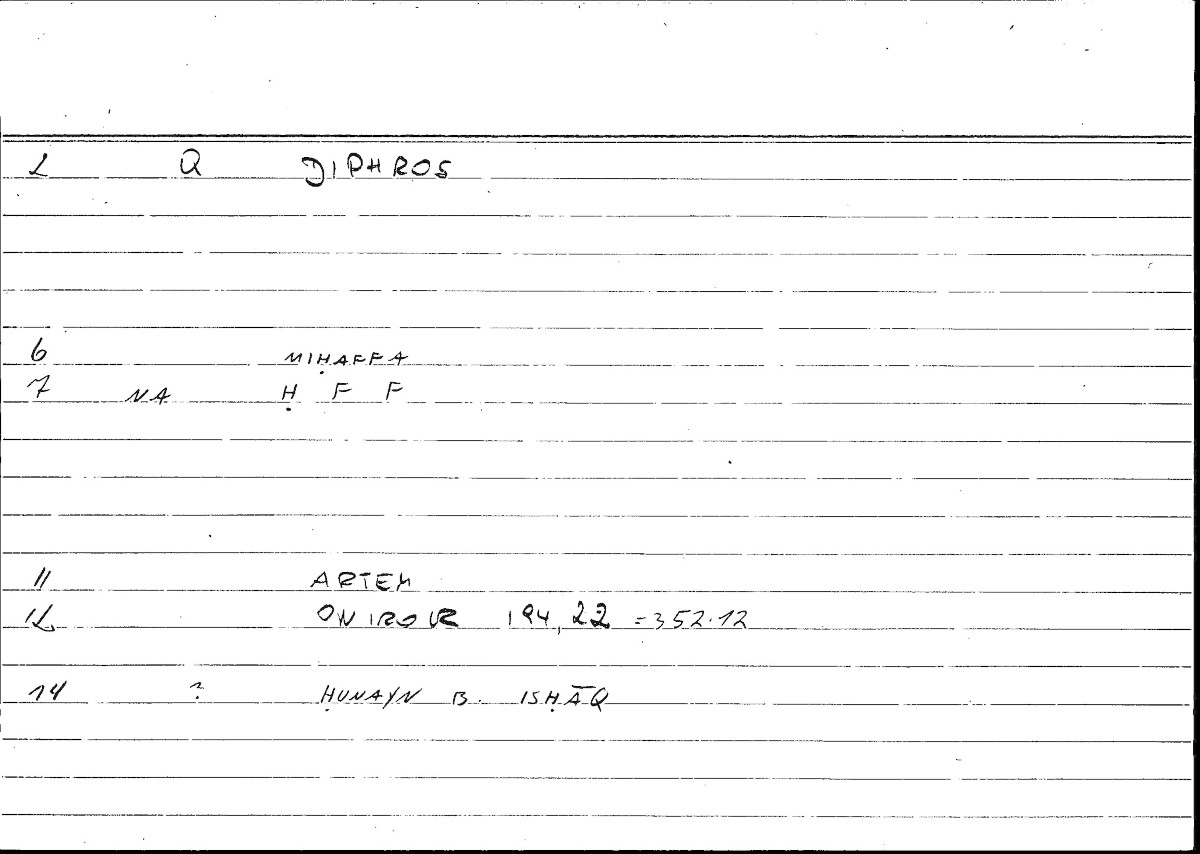 2 Q DIPHROS
6 MIḤAFFA
7 NA Ḥ F F
11 ARTEM
12 ONIROCR 194,22 =352.12
14 ? ḤUNAYN B. ISḤĀQ